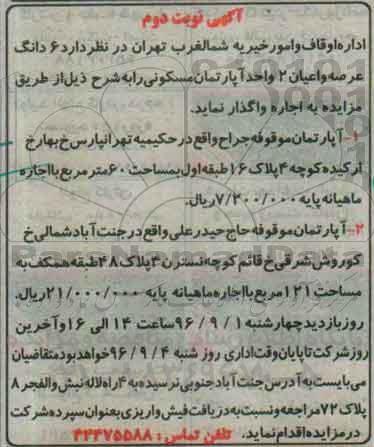 آگهی نوبت دوم
اداره اوقاف و امور خیریه شمالغرب تهران در نظر دارد ۶ دانگ
عرصه و اعیان ۲ واحد آپارتمان مسکونی را به شرح ذیل از طریق
مزایده به اجاره واگذار نماید.
۱- آپارتمان موقوفه جراح واقع در حکیمیه تهرانپارس خ بهار خ
ارکیده کوچه ۴ پلاک ۱۶ طبقه اول بمساحت ۶۰ متر مربع با اجاره
ماهیانه پایه ۷/۲۰۰/۰۰۰ ریال.
۲- آپارتمان موقوفه حاج حیدر علی واقع در جنت آباد شمالی خ
کوروش شرقی خ قائم کوچه نسترن ۴ پلاک ۴۸ طبقه همکف به
مساحت ۱۲۱ مربع با اجاره ماهیانه پایه ۲۱/۰۰۰/۰۰۰ ریال.
روز بازدید چهارشنبه ۱ / ۹ / ۹۶ ساعت ۱۴ الی ۱۶ و آخرین
روز شرکت تا پایان وقت اداری روز شنبه ۴ / ۹ / ۹۶ خواهد بود متقاضیان
می بایست به آدرس جنت آباد جنوبی نرسیده به ۴ راه لاله نبش والفجر ۸
پلاک ۷۲ مراجعه و نسبت به دریافت فیش واریزی بعنوان سپرده شرکت
در مزایده اقدام نماید. تلفن تماس : ۴۴۴۷۵۵۸۸